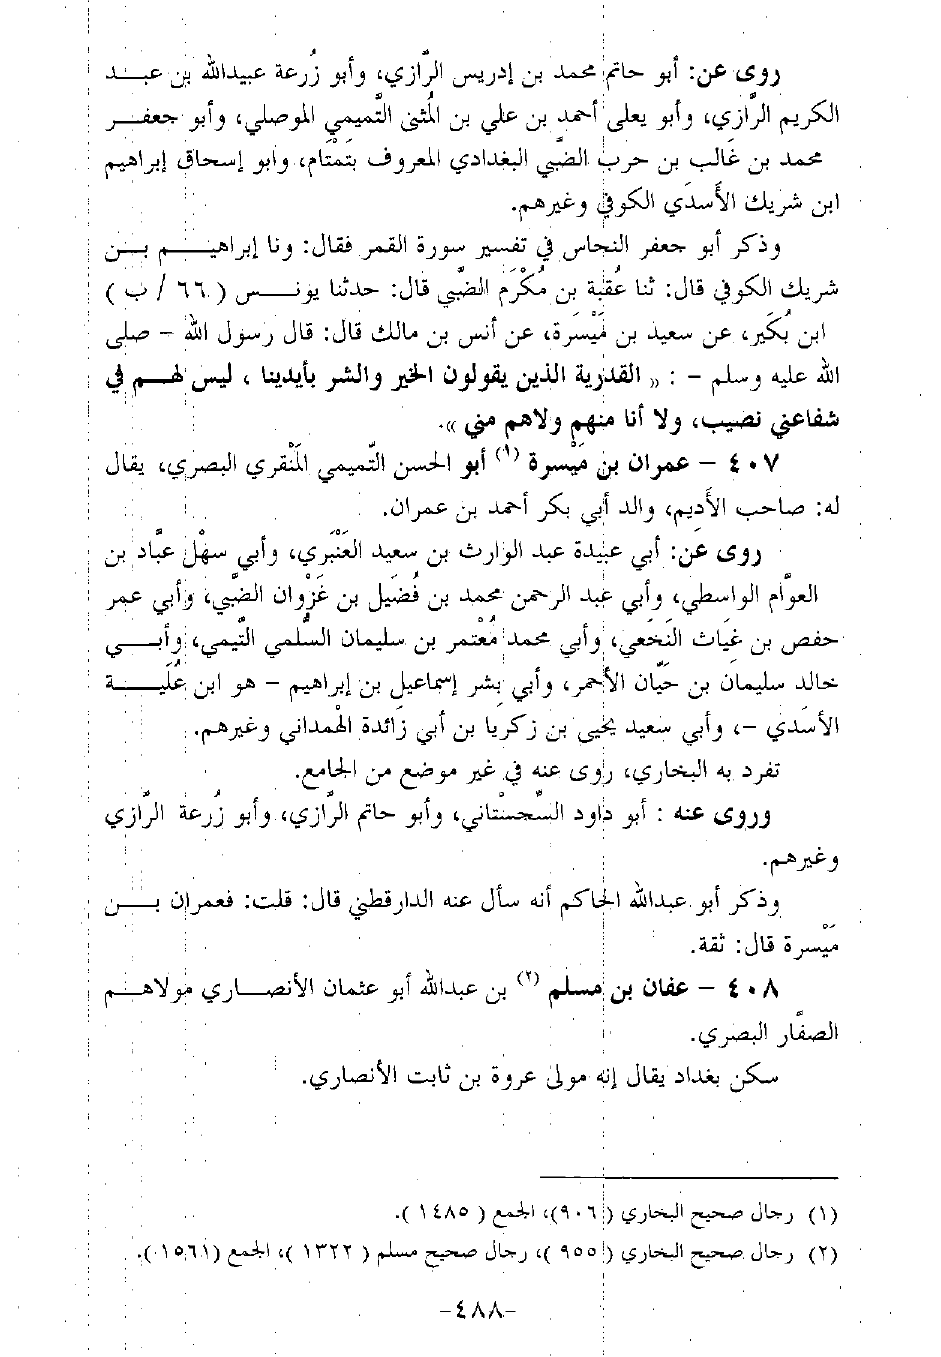 روى عن: أبو حاتم محمد بن إدريس الرَّازي، وأبو زُرعة عبيدالله بن عبـد
الكريم الرَّازي، وأبو يعلى أحمد بن علي بن المُثنى التَّميمي الموصلي، وأبو جعفـر
محمد بن غَالب بن حرب الضَّبي البغدادي المعروف بتَمْتَام، وأبو إسحاق إبراهيم
ابن شريك الأَسَدي الكوفي وغيرهم.
وذكر أبو جعفر النحاس في تفسير سورة القمر فقال: ونا إبراهيـم بـن
شريك الكوفي قال: ثنا عُقبَة بن مُكْرَم الضَّبي قال: حدثنا يونـس (٦٦ / ب )
ابن بُكَير، عن سعيد بن مَيْسَرة، عن أنس بن مالك قال: قال رسول الله – صلى
الله عليه وسلم – : « القدرية الذين يقولون الخير والشر بأيدينا ، ليس لهـم في
شفاعتي نصيب، ولا أنا منهم ولاهم مني ».
٤٠٧ – عمران بن مَيْسرة (١) أبو الحسن التَّميمي المِنْقري البصري، يقال
له: صاحب الأَديم، والد أبي بكر أحمد بن عمران.
روى عَن: أبي عبيدة عبد الوارث بن سعيد العَنْبَري، وأبي سهْل عبَّاد بن
العوَّام الواسطي، وأبي عبد الرحمن محمد بن فُضَيل بن غَزْوان الضَّبي، وأبي عمر
حفص بن غياث النَخعي، وأبي محمد مُعْتمر بن سليمان السُّلمي التَّيمي، وأبـي
خالد سليمان بن حَيَّان الأحمر، وأبي بِشر إسماعيل بن إبراهيم – هو ابن عُلَيـة
الأسَدي –، وأبي سعيد يحيى بن زكريا بن أبي زَائدة الهْمداني وغيرهم.
تفرد به البخاري، روى عنه في غير موضع من الجامع.
وروى عنه : أبو داود السِّجسْتاني، وأبو حاتم الرَّازي، وأبو زُرعة الرَّازي
وغيرهم.
وذكر أبو عبدالله الحاكم أنه سأل عنه الدارقطني قال: قلت: فعمران بـن
مَيْسرة قال: ثقة.
٤٠٨ – عفان بن مسلم (٢) بن عبدالله أبو عثمان الأنصـاري مولاهـم
الصفَّار البصري.
سكن بغداد يقال إنه مولى عروة بن ثابت الأنصاري.
(١) رجال صحيح البخاري (٩٠٦)، الجمع ( ١٤٨٥ ).
(٢) رجال صحيح البخاري ( ٩٥٥ )، رجال صحيح مسلم ( ١٣٢٢ )، الجمع (١٥٦١).
-٤٨٨-